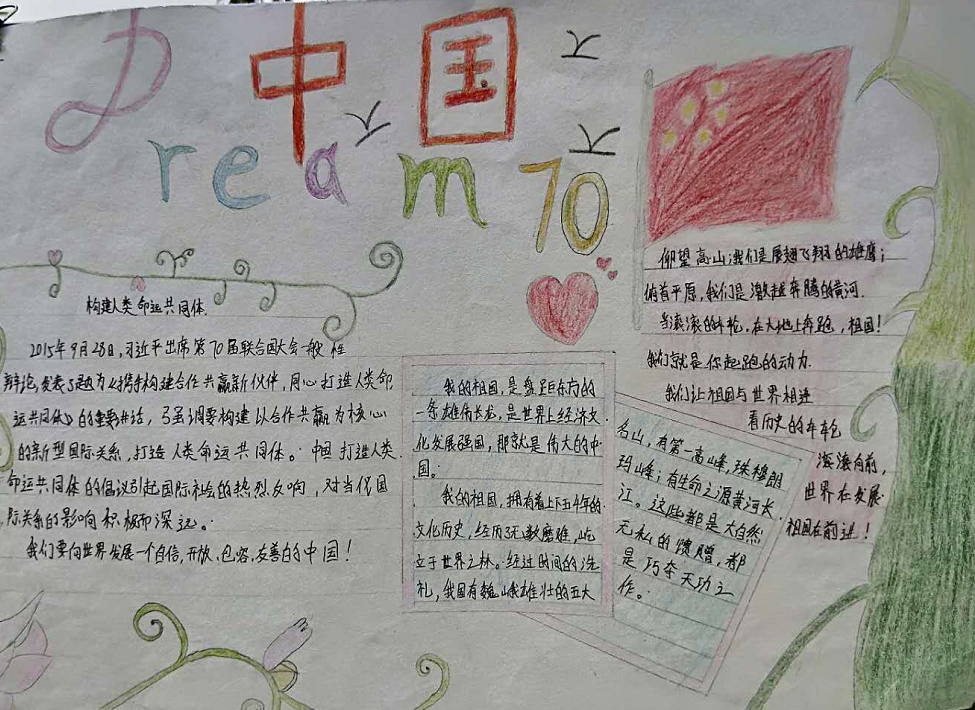 中国
Dream
70
构建人类命运共同体.
2015年9月28日,习近平出席第70届联合国大会一般性
辩论,发表了题为《携手构建合作共赢新伙伴,同心打造人类命
运共同体》的重要讲话,强调要构建以合作共赢为核心
的新型国际关系,打造人类命运共同体。中国打造人类
命运共同体的倡议引起国际社会的热烈反响,对当代国
际关系的影响积极而深远。
我们要向世界发展一个自信,开放,包容,友善的中国!
我的祖国,是盘距东方的
一条雄伟长龙,是世界上经济文
化发展强国,那就是伟大的中
国。
我的祖国,拥有着上下五千年的
文化历史,经历了无数磨难,屹
立于世界之林。经过时间的洗
礼,我国有巍峨雄壮的五大
名山,有第一高峰,珠穆朗
玛峰;有生命之源黄河长
江。这些都是大自然
无私的馈赠,都
是巧夺天功之
作。
仰望高山,我们是展翅飞翔的雄鹰;
俯首平原,我们是激越奔腾的黄河.
当滚滚的车轮,在大地上奔跑,祖国!
我们就是你起跑的动力.
我们让祖国与世界相连
看历史的车轮
滚滚向前,
世界在发展
祖国在前进!